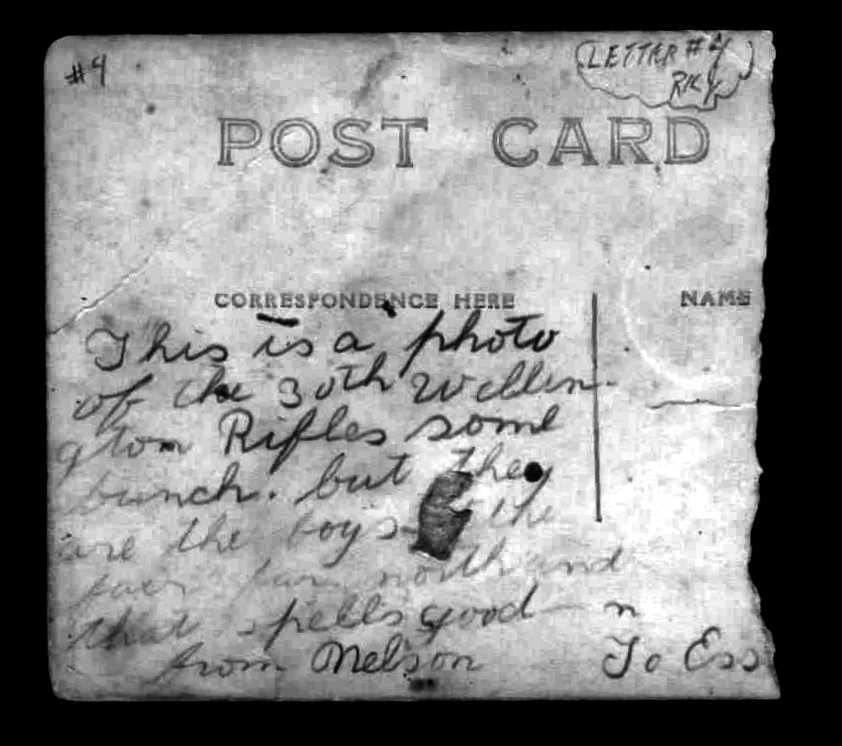 #4
LETTER #4
POST CARD
CORRESPONDENCE HERE
NAME
This is a photo
of the 30th Wellin-
gton Rifles some
bunch. but they
are the boys the
far north and
that spells good
from Nelson
To Ess